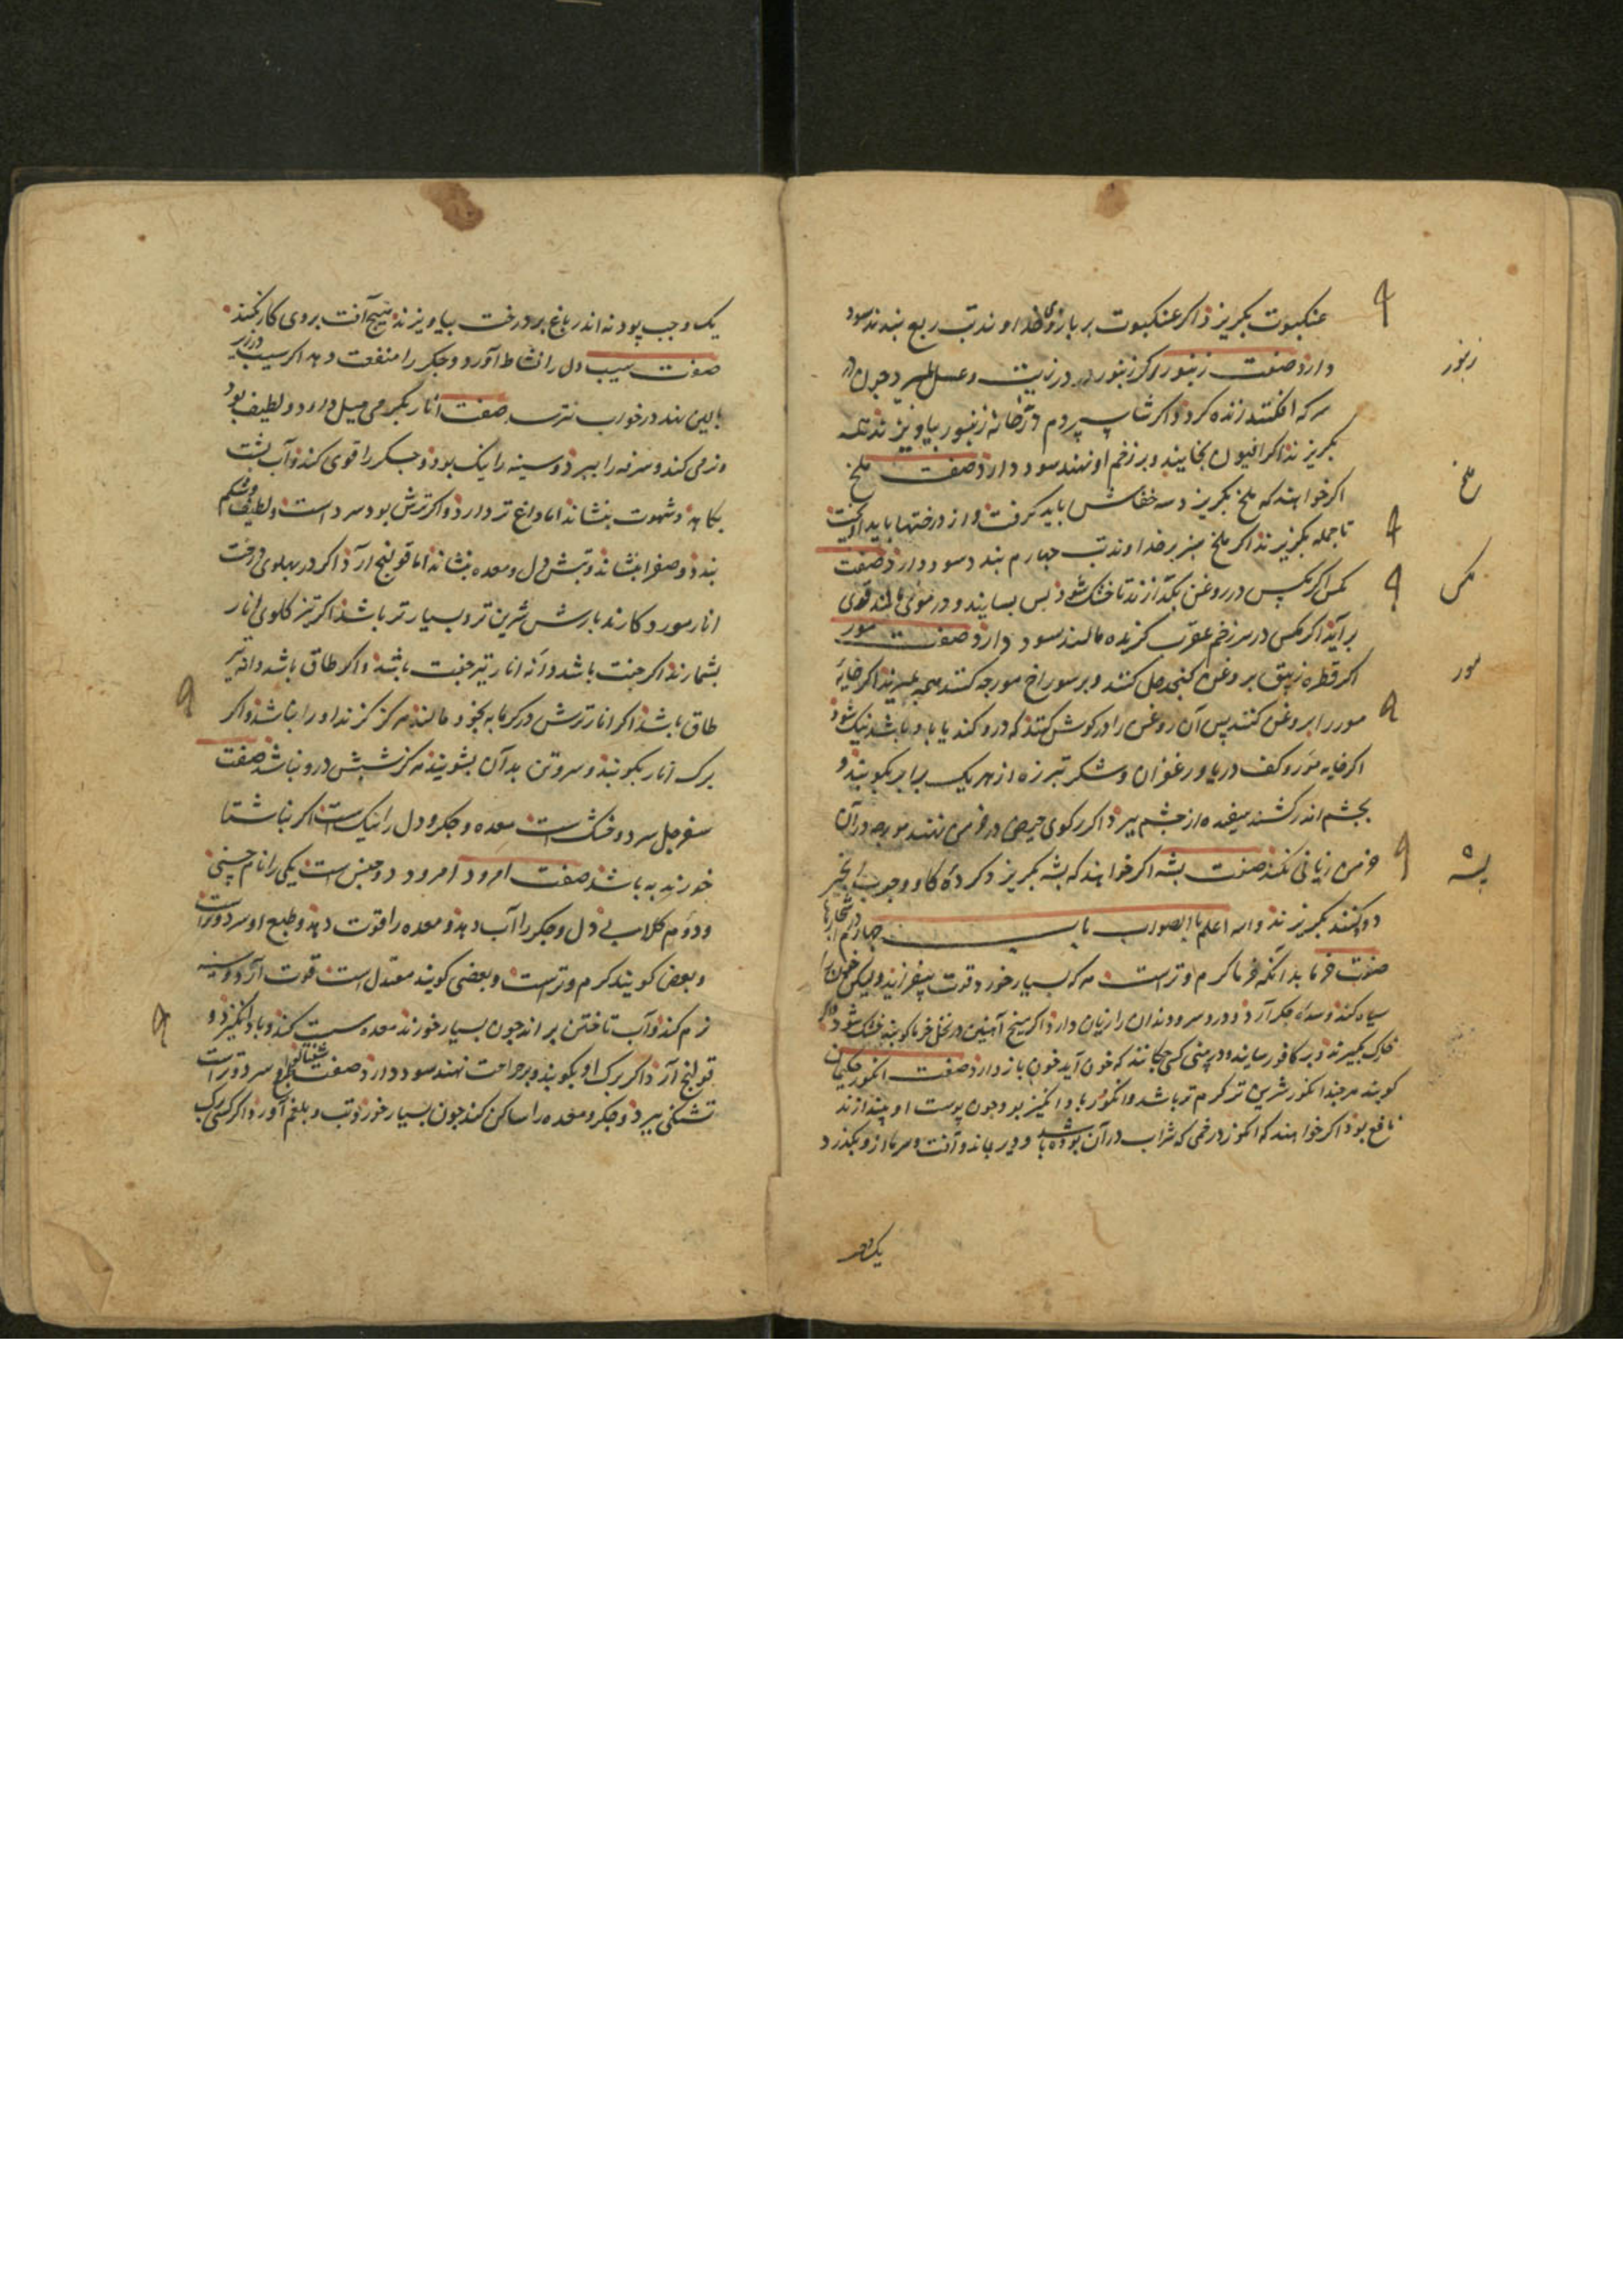 عنکبوت بکریزد اکر عنکبوت بر بازوی خداوند تب ربع بندند سود
دارد صفت زنبور اکر زنبور در زیت و عسل میرد چون در
سرکه افکنند زنده کردد اکر شاسپردم در خانه زنبور بیاویزند همه
بکریزند اکر افیون بخایند و بر زخم او نهند سود دارد صفت ملخ
اکر خواهند که ملخ بکریزد سه خفاش باید کرفت و از درختها باید آویخت
تا جمله بکریزند اکر ملخ سبز بر خداوند تب چهارم بندد سود دارد صفت
مکس اکر مکس در روغن بکدازند تا خشک شود پس بسایند و در موی مالند قوی
برآید اکر مکس در سر زخم عقرب کزیده مالند سود دارد صفت مور
اکر قطره زیبق بروغن کنجد حل کنند و بر سوراخ مورچه کنند همه بمیرند اکر خایه
مور را بروغن کنند پس آن روغن را در کوش کنند که درد کند یا باد باشد نیک شود
اکر خایه مور و کف دریا و زعفران و شکر تبرزه از هر یک برابر بکوبند و
بچشم اندر کشند سفیده از چشم ببرد اکر رکوی حیض در خرمن نهند مورچه در آن
خرمن زیانی نکند صفت پشه اکر خواهند که پشه بکریزد کرده کاو و چوب انجیر
دود کنند بکریزند والله اعلم بالصواب باب چهارم در اشجارها
صفت خرما بدانکه خرما کرم و تر است هر که بسیار خورد قوت بیفزاید ولیکن خون را
سیاه کند و سده جکر آرد و درد سر و دندان را زیان دارد اکر میخ آهنین در نخل خرما کوبند خشک شود و اکر
خارک بکیرند و بر کافور سایند و در بینی کسی چکانند که خون آید خون باز دارد صفت انکور حکیمان
کویند هر چند انکور شیرین تر کرم تر باشد و انکور باد انکیز بود چون پوست او بیندازند
نافع بود اکر خواهند که انکور در خمی که شراب در آن بوده باشد و دیر بماند و آفت و سرما از و بکذرد
یک وجب
زنبور
ملخ
مکس
مور
پشه
یک وجب پودنه اندر باغ بر درخت بیاویزند هیچ آفت بر وی کار نکند
صفت سیب دل را نشاط آورد و جکر را منفعت دهد اکر سیب در زیر
بالین نهند در خواب نترسد صفت انار بکرمی میل دارد و لطیف بود
و نرمی کند و سرفه را ببرد و سینه را نیک بود و جکر را قوی کند و آب پشت
بکاهد و شهوت بنشاند اما دماغ تر دارد و اکر ترش بود سرد است و لطیف و شکم
بندد و صفرا بنشاند و تبش دل و معده بنشاند اما قولنج آرد اکر در پهلوی درخت
انار مورد کارند بارش شیرین تر و بسیارتر باشد اکر تیز کلوی انار
بشمارند اکر جفت باشد دانه انار نیز جفت باشد و اکر طاق باشد دانه نیز
طاق باشد اکر انار ترش در کرمابه بخود مالند هرکز کزند او را نباشد و اکر
برک انار بکوبند و سر و تن بدان بشویند هرکز شپش درو نباشد صفت
سفرجل سرد و خشک است معده و جکر و دل را نیک است اکر بناشتا
خورند به باشد صفت امرود امرود دو جنس است یکی را نام چینی
و دوم کلابی دل و جکر را آب دهد و معده را قوت دهد و طبع او سرد و تر است
و بعضی کویند کرم و تر است و بعضی کویند معتدل است قوت آرد و سینه
نرم کند و آب تاختن براند چون بسیار خورند معده سست کند و باد انکیزد و
قولنج آرد اکر برک او بکوبند و بر جراحت نهند سود دارد صفت شفتالو سرد و تر است
تشنکی ببرد و جکر و معده را ساکن کند چون بسیار خورد تب و بلغم آورد اکر کسی برک